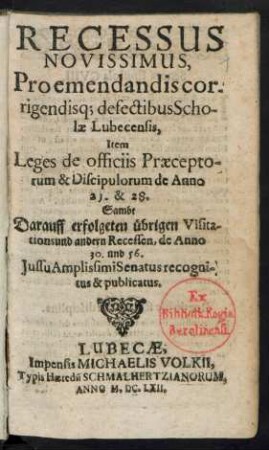 RECESSUS
NOVISSIMUS,
Pro emendandis cor-
rigendisq; defectibus Scho-
læ Lubecensis,
Item
Leges de officiis Præcepto-
rum & Discipulorum de Anno
21. & 28.
Sambt
Darauff erfolgeten übrigen Visita-
tions und andern Recessen, de Anno
30. und 56.
Jussu Amplissimi Senatus recogni-
tus & publicatus.
Ex
Biblioth. Regia
Berolinensi.
LUBECÆ,
Impensis MICHAELIS VOLKII,
Typis Hæredū SCHMALHERTZIANORUM,
ANNO M. DC. LXII.